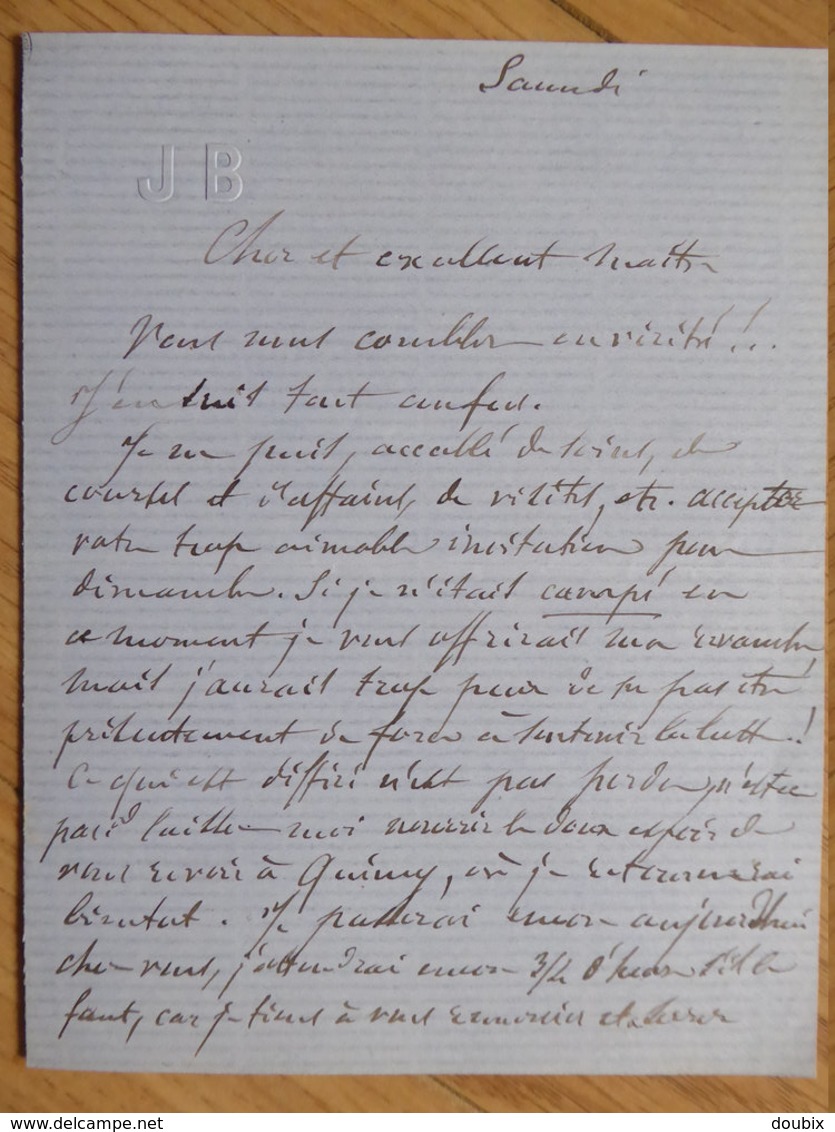 Samedi
J B
Cher et excellent Maître
Vous nous comblez en vérité !..
J'en suis tout confus.
Je ne puis, accablé de soins, de
courses et d'affaires, de visites, etc. accepter
votre trop aimable invitation pour
dimanche. Si je n'étais campé en
ce moment je vous offrirais ma revanche,
mais j'aurais trop peur de ne pas être
présentement de force à soutenir la lutte !
Ce qui est différé n'est pas perdu, n'est ce
pas ? laissez moi nourrir le doux espoir de
vous revoir à Quincy, où je retournerai
bientôt. Je passerai encore aujourd'hui
chez vous, j'attendrai encore 3/4 d'heure s'il le
faut, car je tiens à vous remercier et à serrer
www.delcampe.net
doubix